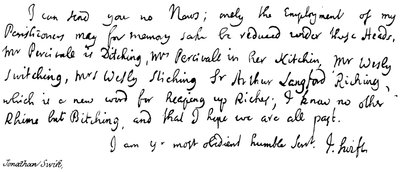 I can send you no News; onely the Employment of my
Parishioners may for memory sake be reduced under these Heads,
Mr Percivale is Ditching, Mrs Percivale in her Kitchin, Mr Wesly
switching, Mrs Wesly stiching Sr Arthur Langford Riching,
which is a new word for heaping up Riches; I know no other
Rhime but Bitching, and that I hope we are all past.
I am yr most obedient humble Servt. J. Swift
Jonathan Swift,